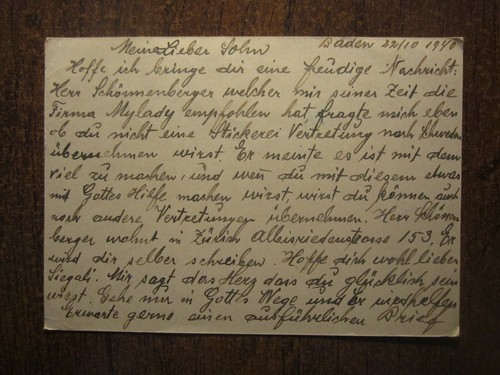 Meine Lieber Sohn Baden 22/10 1940
Hoffe ich bringe dir eine freudige Nachricht:
Herr Schönnenberger welcher mir seiner Zeit die
Firma Mylady empfohlen hat, fragte mich eben
ob du nicht eine Stickerei Vertretung nach Schweden
übernehmen wirst. Er meinte es ist mit dem
viel zu machen, und wen du mit diesem etwas
mit Gottes Hilfe machen wirst, wirst du können auch
noch andere Vertretungen übernehmen. Herr Schönnen
berger wohnt in Zürich Albisriederstrasse 153. Er
wird dir selber schreiben. Hoffe dich wohl lieber
Siegab. Mir sagt das Herz dass du glücklich sein
wirst. Gehe nur in Gottes Wege und Er
Erwarte gerne einen ausführlichen Brief